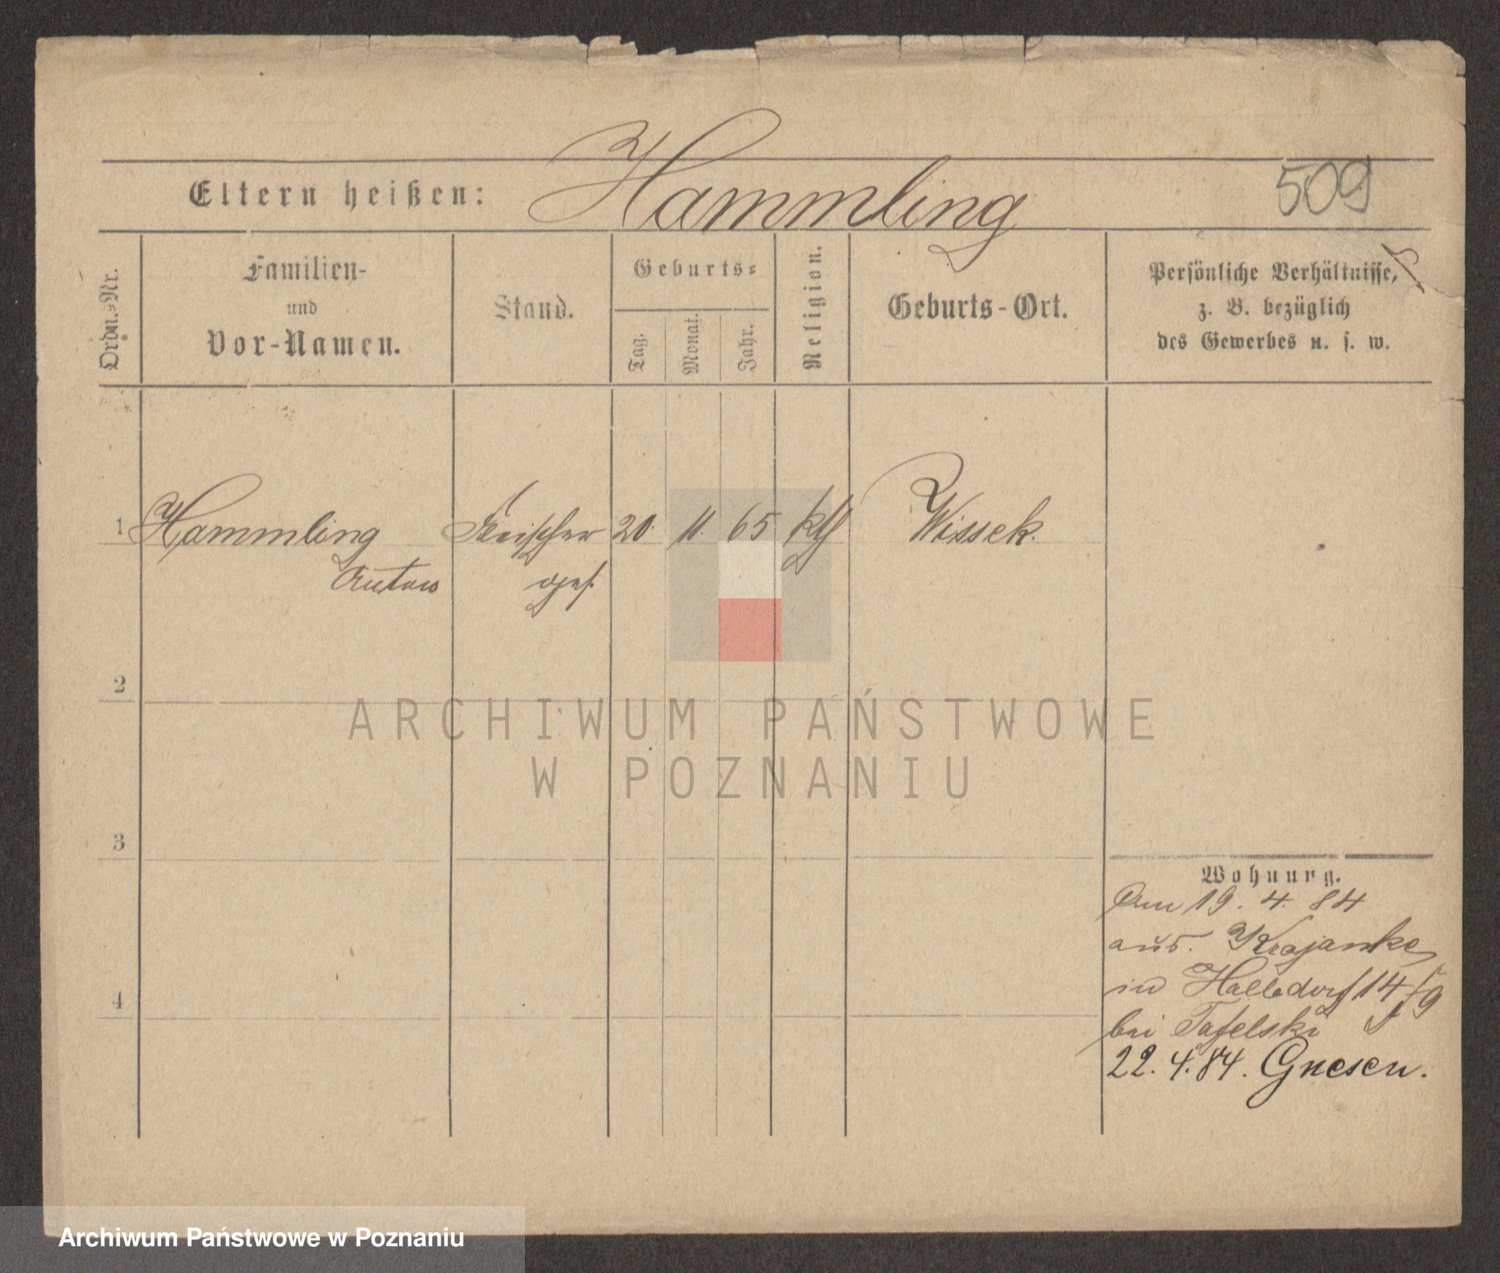 Eltern heißen: Hammling 509
Ordn.-Nr.
Familien-
und
Vor-Namen.
Stand.
Geburts-
Tag.
Monat.
Jahr.
Religion.
Geburts-Ort.
Persönliche Verhältnisse,
z. B. bezüglich
des Gewerbes u. s. w.
1 Hammling Fleischer 20. 11. 65 kth Wissek.
Anton ges.
2
3
4
Wohnung.
Am 19. 4. 84
aus. Krojanke
in Halbdorf 14/
bei Tafelski
22. 4. 84. Gnesen.
ARCHIWUM PAŃSTWOWE
W POZNANIU
Archiwum Państwowe w Poznaniu